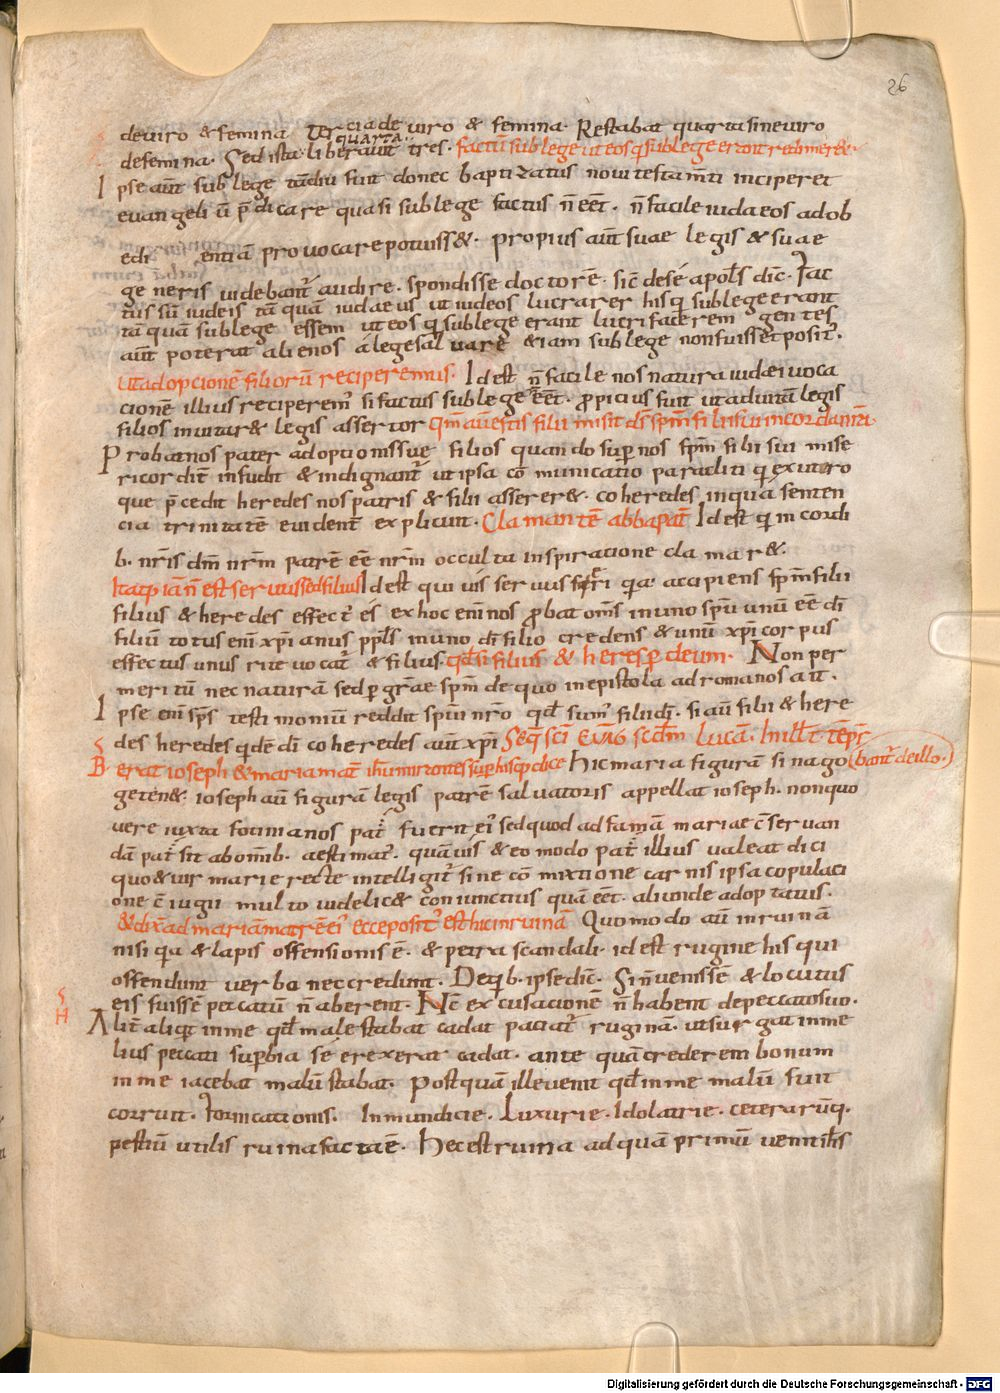 26
de uiro & femina Tercia de uiro & femina. Restabat quarta sine uiro
quarta
de femina. Sed ista liberauit tres. factū sub lege ut eos q̄ sub lege erant redimer&.
Ipse aūt sub lege tādiu fuit donec baptizatus noui testam̄ti inciperet
euangeliū p̄dicare quasi sub lege factus n̄ eēt. n̄ facile iudaeos ad ob
edi entiā prouocare potuiss&. propius aūt suae legis & suae
generis uidebant̄ audire. spondisse doctorē. sic̄ de sé apōls dic̄. fac
tus sū iudeis tāquā iudaeus ut iudeos lucrarer his q̄ sub lege erant
tāquā sub lege essem ut eos q̄ sub lege erant lucrifacerem gentes
aūt poterat alienos a lege saluare & iam sub lege non fuisset posit᾽.
ut adopcionē filiorū reciperemus. Id est n̄ facile nos natura iudaei uoca
cionē illius reciperem᾽ si factus sub lege n̄ eēt. propicius fuit ut adunā legis
filios inuitar& legis assertor qm̄ aū estis filii misit d̄s sp̄m filii sui in corda nr̄a.
Probat nos pater adoptionis suę filios quando sup̄ nos sp̄m filii sui mise
ricordit̄ infudit & indignant᾽ ut ipsa cōmunicatio paracliti q ex utero
que p̄cedit heredes nos patris & filii asserer&. coheredes in quā senten
cia trinitatē euident̄ explicuit. Clamantē abba pat̄ Id est q in cordi
b. nr̄is dm̄ nr̄m patrē eē nr̄m occulta inspiratione clamar&.
Itaq iā n̄ est seruus sed filius Id est qui uis seruus fieri q̄a accipiens sp̄m filii
filius & heredes effect᾽ es ex hoc enī nos probat om̄s in uno sp̄u unū eē dī
filiū totus enī xp̄ianus pp̄ls in uno dī filio credens & unū xp̄i corpus
effectus unus rite uocat᾽ & filius. qđ si filius & heres p̱ deum. Non per
meritū nec naturā sed p̱ gr̄ae sp̄m de quo in epistola ad romanos aīt.
Ipse enī sp̄s testimoniū reddit sp̄ui nr̄o qđ sum᾽ filii dī. si aū filii & here
des heredes qdē dī coheredes aūt xp̄i Seq̄ sc̄i euāg scdm̄ lucā. In ill̄ t tēpr̄
Berat ioseph & maria mat̄ ih̄u mirantes sup̱ his q̄ dice Hic maria figurā sinago (bant̄ de illo.
ge ten&. ioseph aū figurā legis patrē saluatoris appellat ioseph. non quo
uere iuxta fotinianos pat̄ fuerit ei᾽ sed quod ad famā mariae c̄seruan
dā pat̄ sit ab omīb. aestimat᾽. quāuis & eo modo pat̄ illius ualeat dici
quo & uir marie recte intelligit᾽ sine cōmixtione carnis ipsa copulaci
one c̄iugii multo uidelic& coniunctius quā eēt. aliunde adoptatus.
& dix̄ ad mariā matrē ei᾽ ecce posit᾽ est hic in ruinā Quomodo aū in ruinā
nisi q̄a & lapis offensionis ē. & petra scandali. id est rugine his qui
offendunt uerbo nec credunt. De q̄b. ipse dic̄. Si n̄ uenissē & locutus
eis fuissē peccatū n̄ aberent. Nc̄ excusacionē n̄ habent de peccato suo.
Alit̄ aliq̄t in me qđ male stabat cadat paciat᾽ ruginā. ut surgat in me
lius peccati sup̱bia sé erexerat cadat. ante quā crederem bonum
in me iacebat malū stabat. postquā ille uenit qđ in me malū fuit
corruit. fornicationis. Inmundicie. Luxurie. Idolatrie. ceterarūq.
pestiū utilis ruina facta ē. Hec est ruina ad quā primū uenit ih̄s
Digitalisierung gefördert durch die Deutsche Forschungsgemeinschaft - DFG